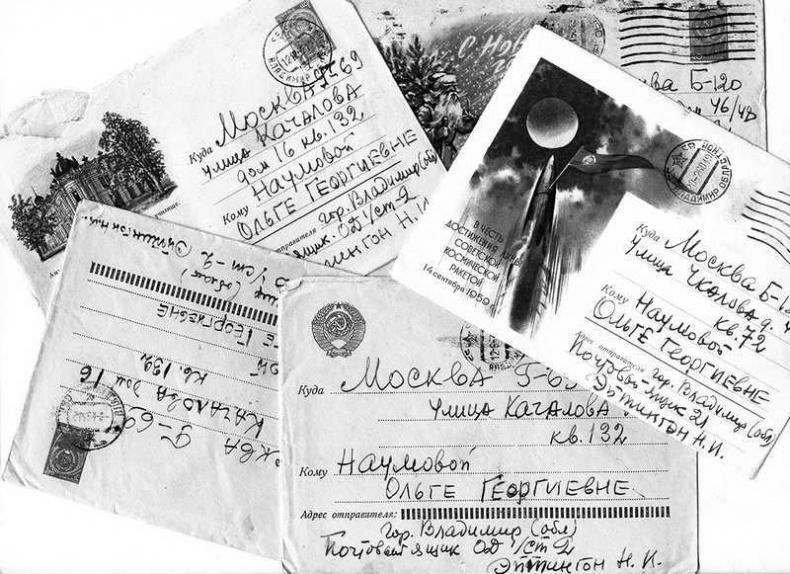 Куда Москва Г-69
улица Качалова
дом 16 кв. 132
Кому Наумовой
Ольге Георгиевне
гор. Владимир (обл)
ящик ОД 1/ст-2
Эйтингон Н. И.
С Нов
Б-120
46/48
В ЧЕСТЬ
ДОСТИЖЕНИЯ ЛУНЫ
СОВЕТСКОЙ
КОСМИЧЕСКОЙ
РАКЕТОЙ
14 сентября 1959
Куда Москва Б-120
улица Чкалова д.
кв. 72
Кому Наумовой
Ольге Георгиевне
Адрес отправителя: гор. Владимир (обл)
Почтовый ящик 21
Эйтингон Н. И.
Эйтингон Н. И.
ОД 1/ст-2
Георгиевне
кв. 132
Качалова дом 16
Г-69
Куда Москва Г-69
улица Качалова
кв. 132
Кому Наумовой
Ольге Георгиевне
Адрес отправителя:
гор. Владимир (обл)
Почтовый ящик ОД 1/ст-2
Эйтингон Н. И.